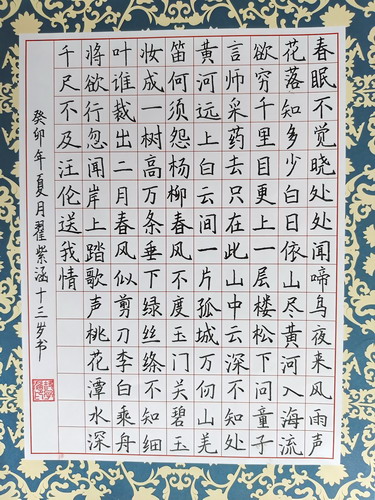 春眠不觉晓处处闻啼鸟夜来风雨声
花落知多少白日依山尽黄河入海流
欲穷千里目更上一层楼松下问童子
言师采药去只在此山中云深不知处
黄河远上白云间一片孤城万仞山羌
笛何须怨杨柳春风不度玉门关碧玉
妆成一树高万条垂下绿丝绦不知细
叶谁裁出二月春风似剪刀李白乘舟
将欲行忽闻岸上踏歌声桃花潭水深
千尺不及汪伦送我情
癸卯年夏月翟紫涵十三岁书